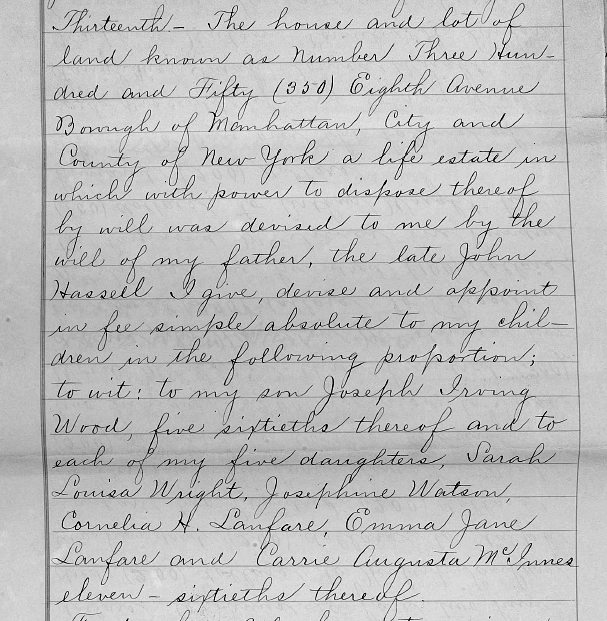 Thirteenth - The house and lot of
land known as Number Three Hun-
dred and Fifty (350) Eighth Avenue
Borough of Manhattan, City and
County of New York a life estate in
which with power to dispose thereof
by will was devised to me by the
will of my father, the late John
Hassell I give, devise and appoint
in fee simple absolute to my chil-
dren in the following proportion;
to wit: to my son Joseph Irving
Wood, five sixtieths thereof and to
each of my five daughters, Sarah
Louisa Wright, Josephine Watson,
Cornelia H. Lanfare, Emma Jane
Lanfare and Carrie Augusta McInnes
eleven - sixtieths thereof.